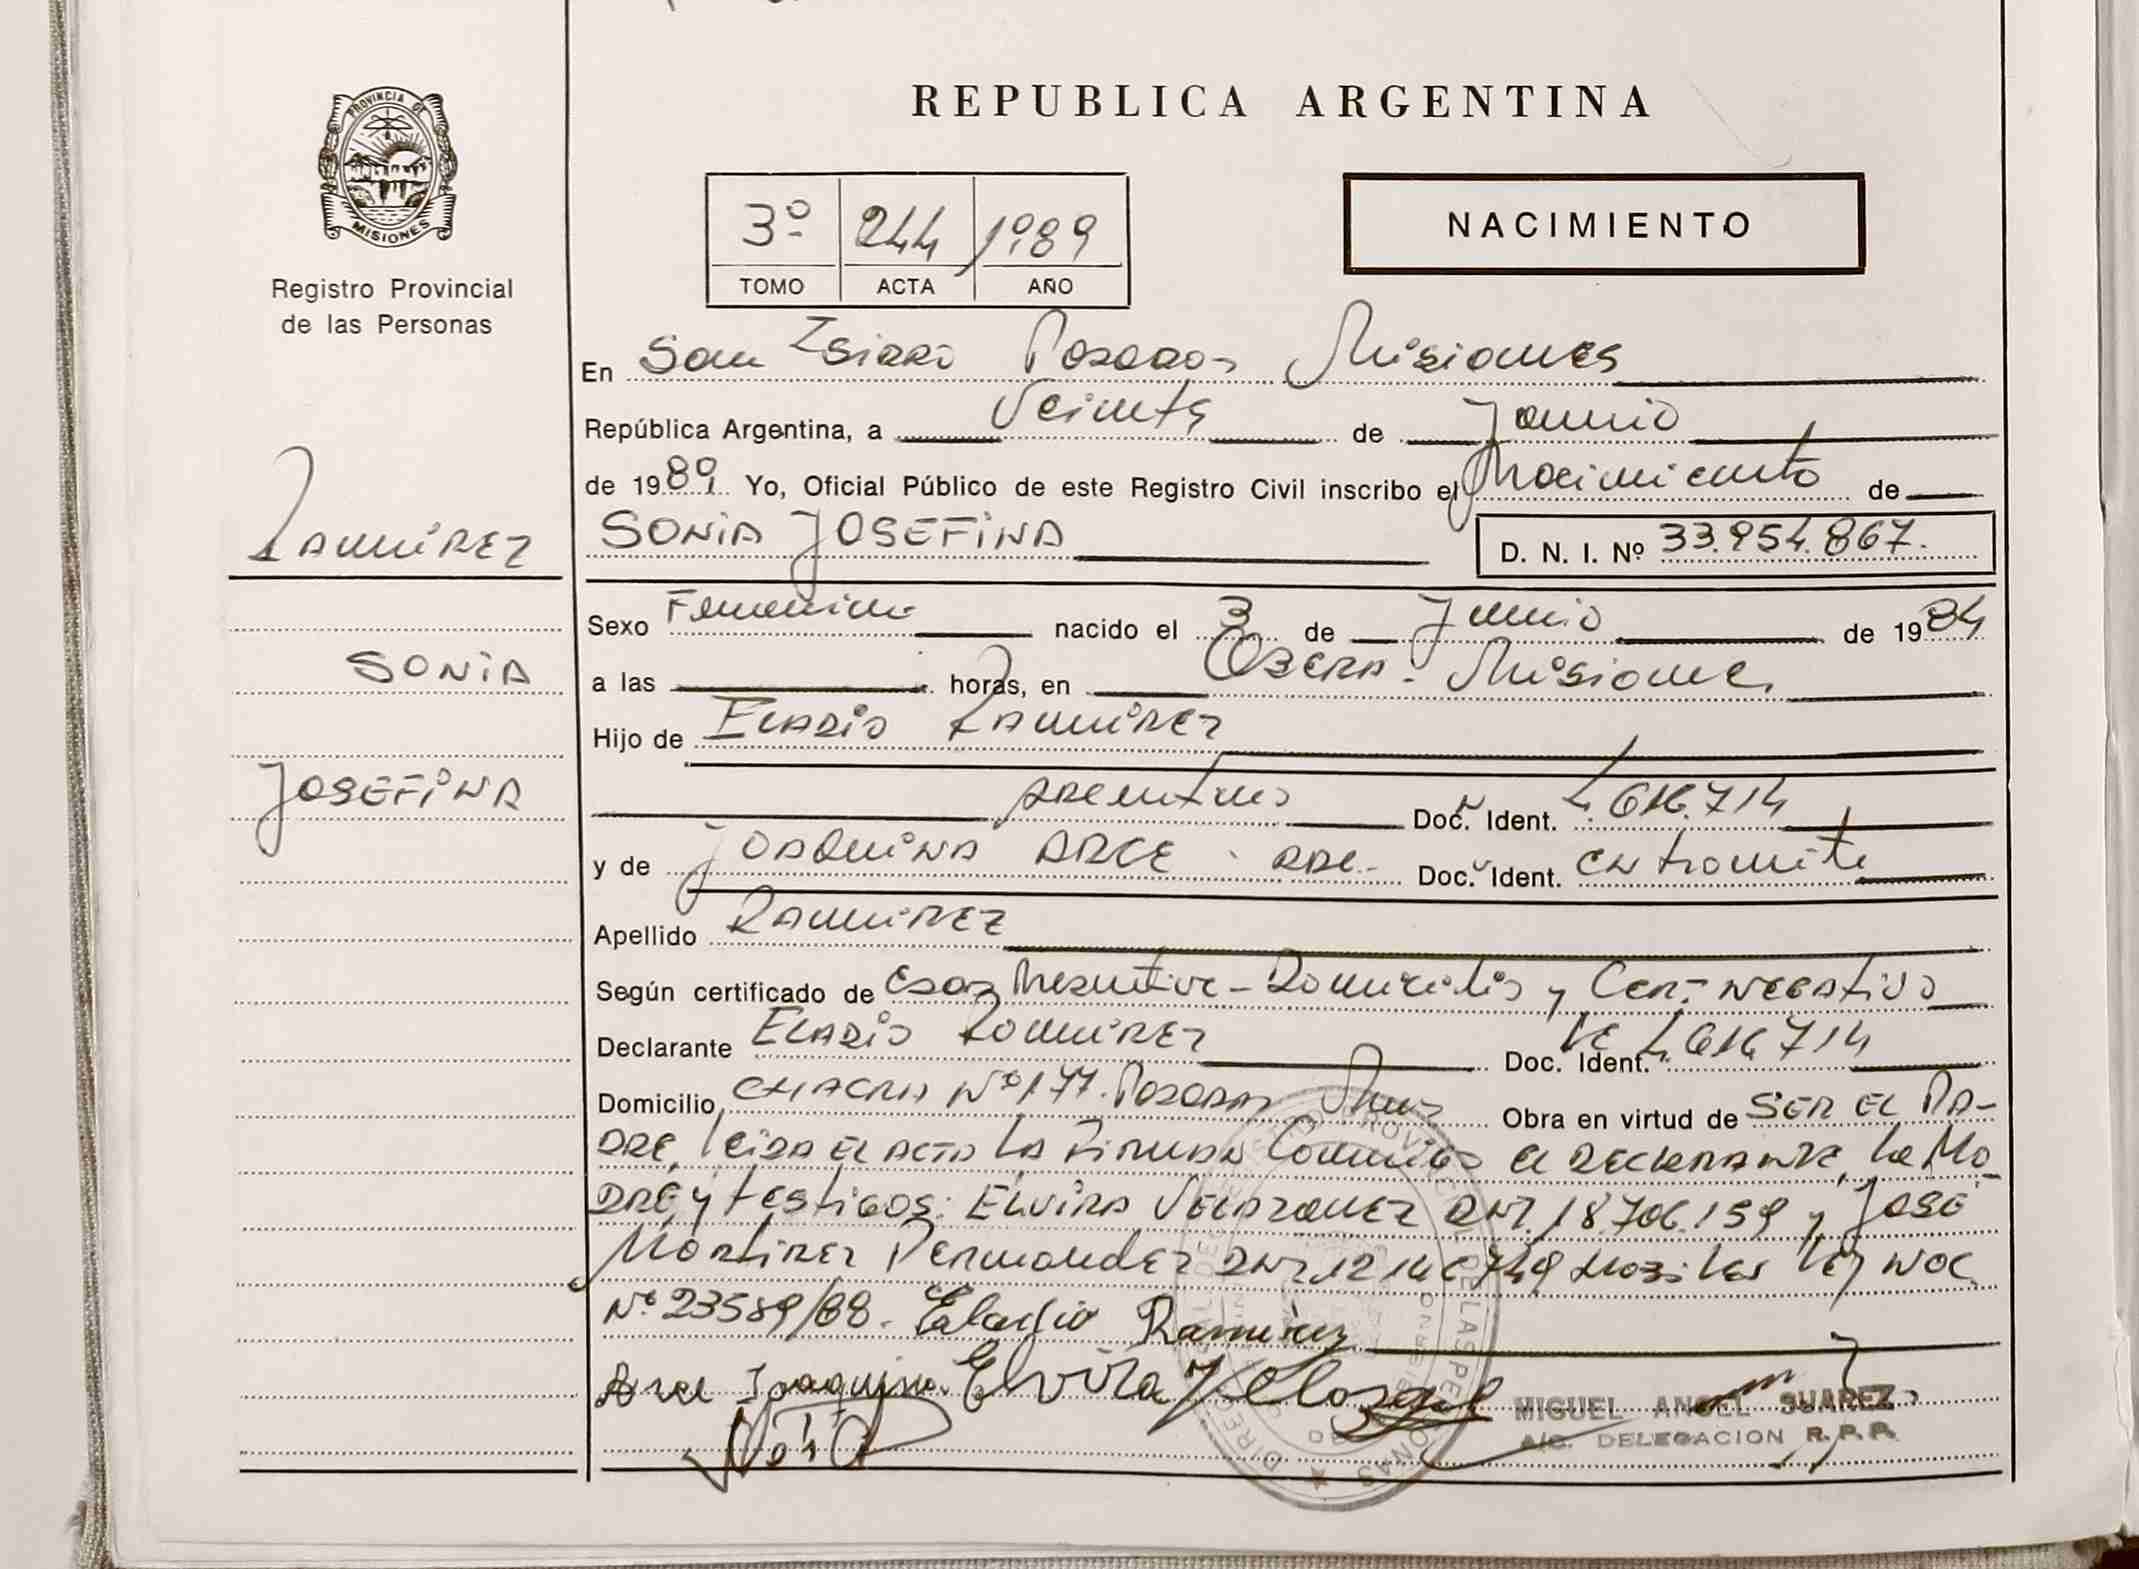 REPUBLICA ARGENTINA
PROVINCIA DE MISIONES
Registro Provincial
de las Personas
3º 244 1989
TOMO ACTA AÑO
NACIMIENTO
En San Isidro Posadas Misiones
República Argentina, a Veinte de Junio
de 1989. Yo, Oficial Público de este Registro Civil inscribo el Nacimiento de
RAMIREZ
SONIA JOSEFINA D. N. I. Nº 33.954.867.
Sexo Femenino nacido el 3 de Junio de 1984
SONIA
a las horas, en Obera. Misiones
Hijo de ELADIO RAMIREZ
JOSEFINA
Argentino Doc. Ident. 4.616.714
y de JOAQUINA ARCE Doc. Ident. en tramite
Apellido RAMIREZ
Según certificado de Edad Presuntiva - Domicilio y Cert. negativo
Declarante ELADIO RAMIREZ Doc. Ident. 4.616.714
Domicilio CHACRA Nº 177. Posadas Obra en virtud de SER EL PA-
DRE, leida el acta la firman conmigo el declarante, la Ma-
dre y testigos: ELVIRA VELAZQUEZ DNI. 18.706.159 y JOSE
Martires Ley NAC
Nº 23589/88. Eladio Ramirez
Arce Joaquina Elvira Velazquez
MIGUEL ANGEL SUAREZ
A/C. DELEGACION R.P.P.